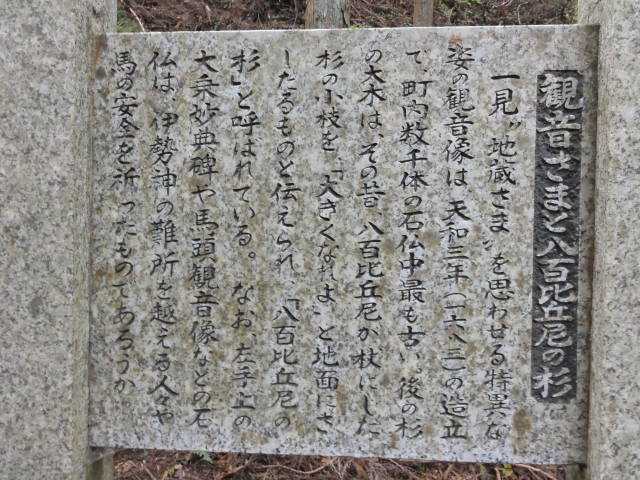 観音さまと八百比丘尼の杉
一見〝地蔵さま〟を思わせる特異な
姿の観音像は、天和三年(一六八三)の造立
で、町内数千体の石仏中最も古い。後の杉
の大木は、その昔、八百比丘尼が杖にした
杉の小枝を、「大きくなれよ」と地面にさ
したるものと伝えられ、「八百比丘尼の
杉」と呼ばれている。なお、左手上の
大乗妙典碑や馬頭観音像などの石
仏は、伊勢神の難所を越える人々や
馬の安全を祈ったものであろうか